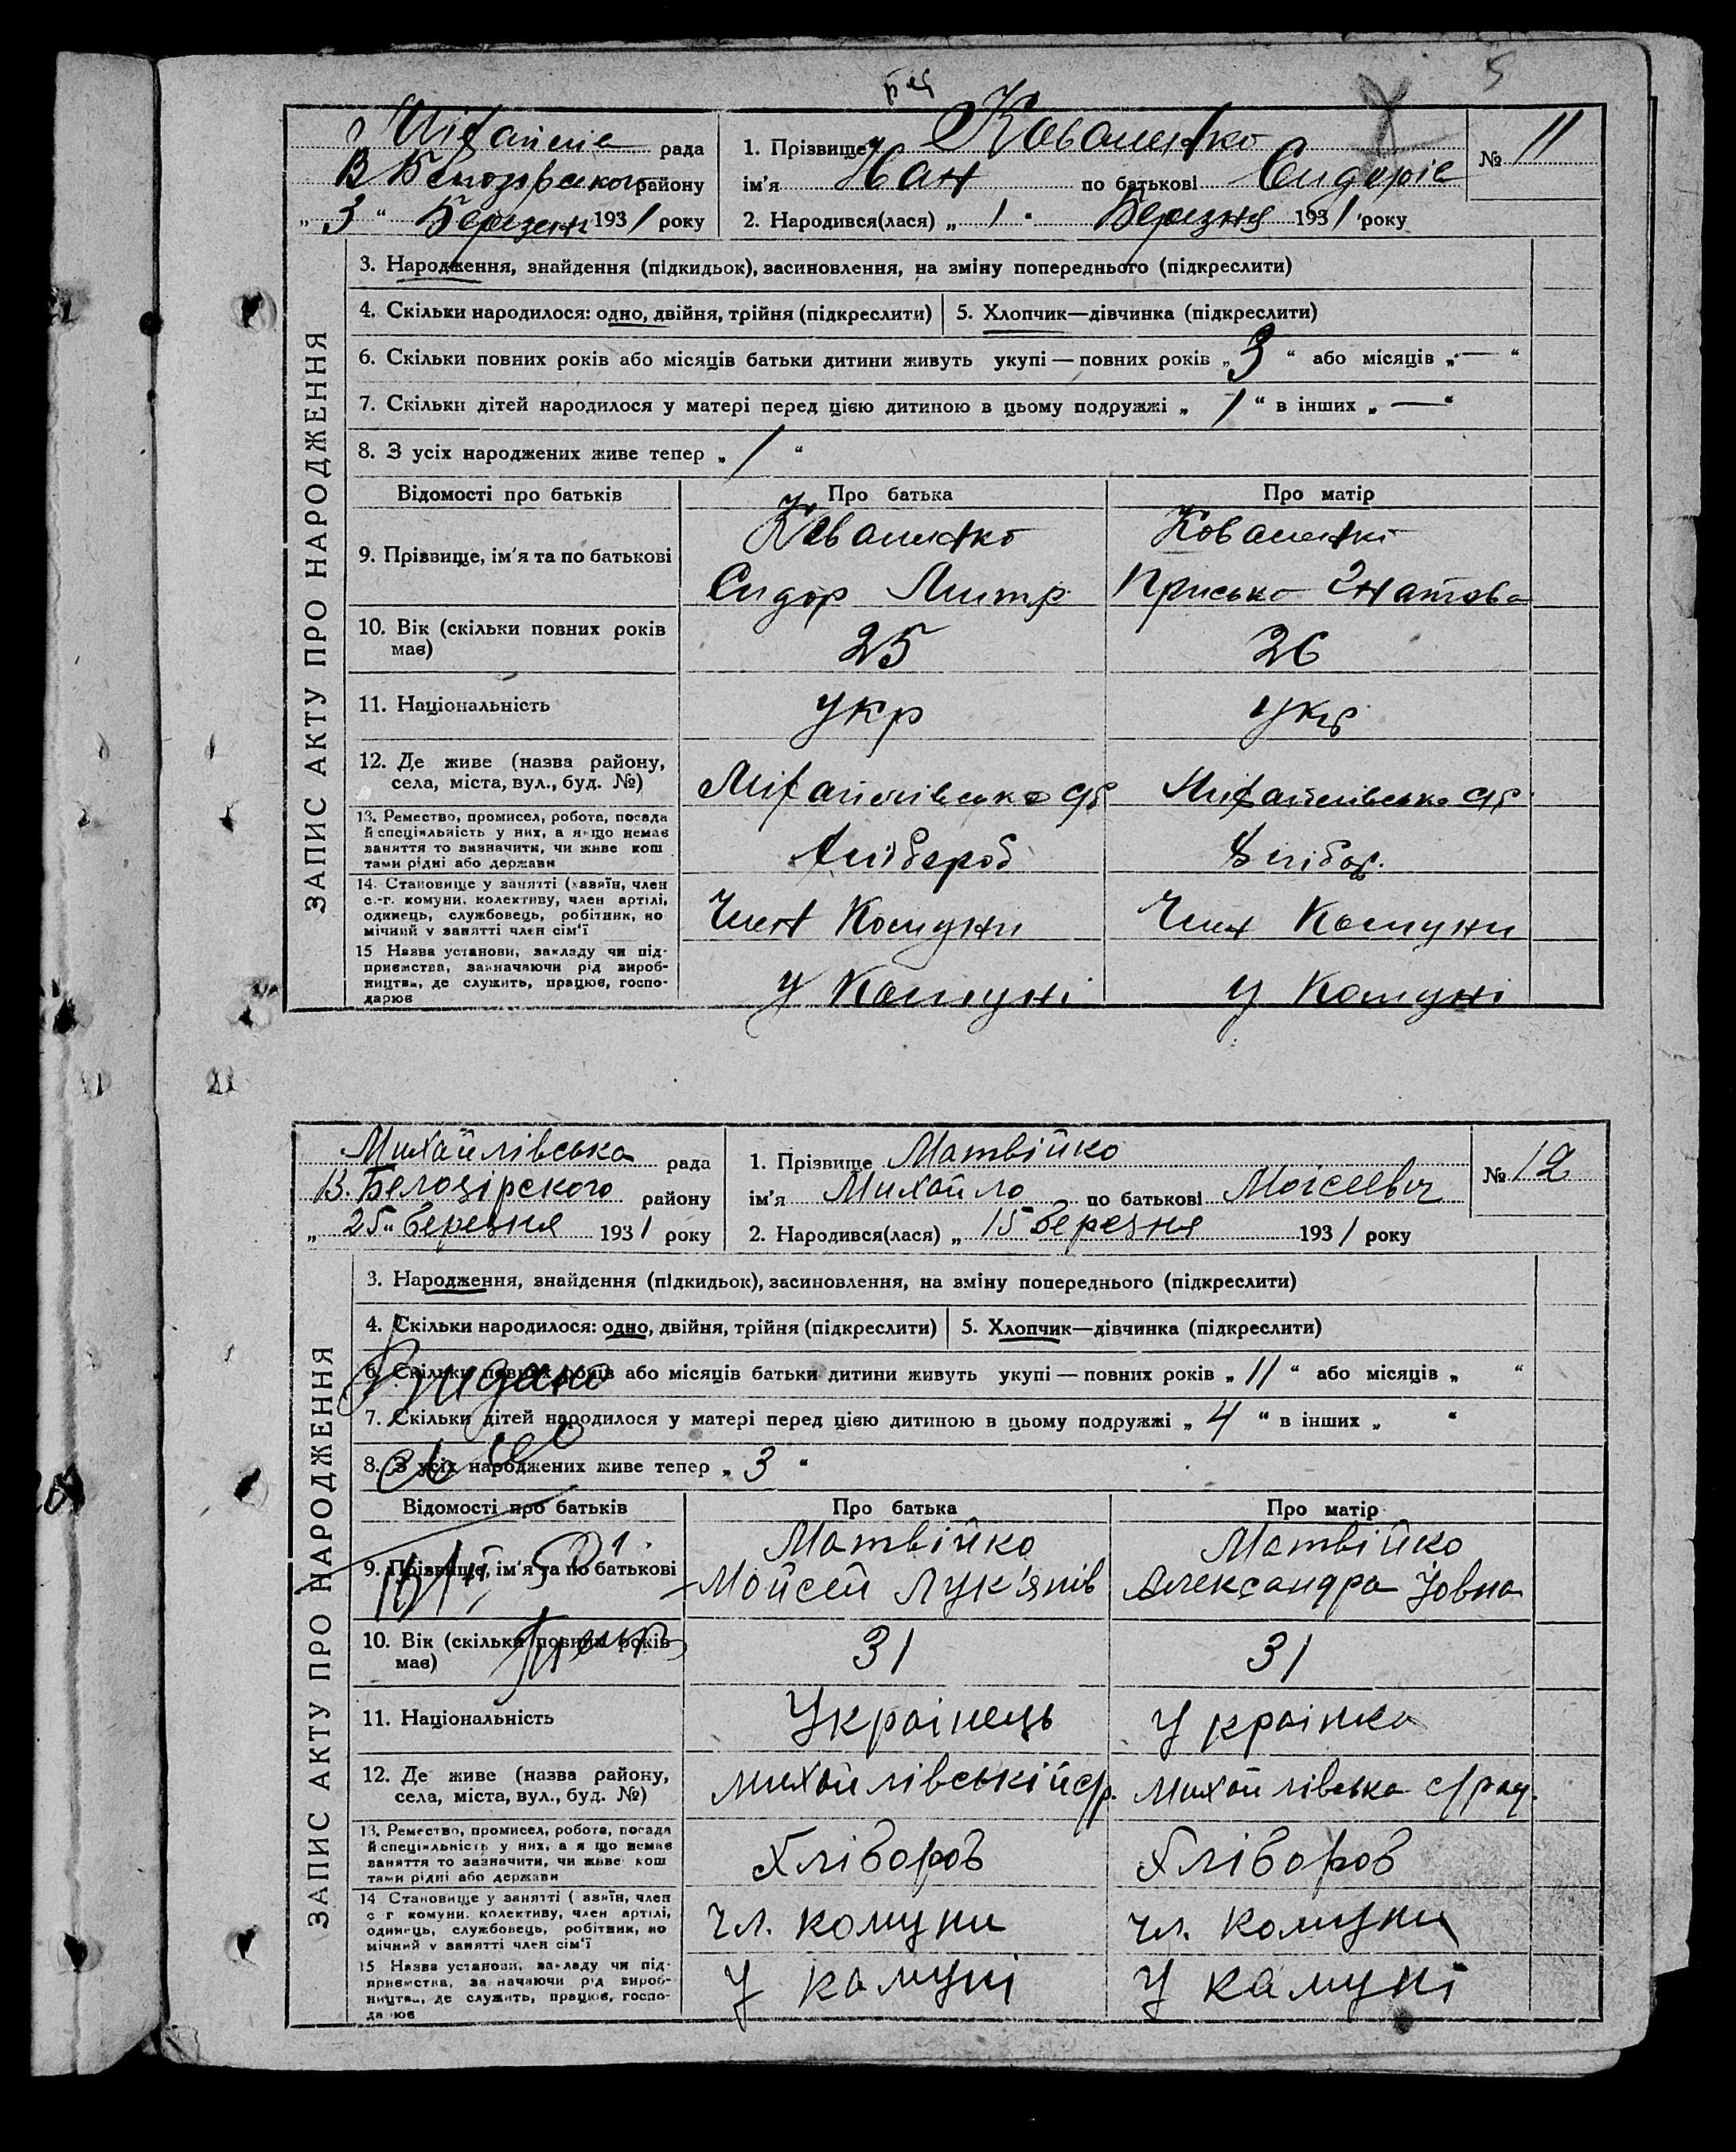 5
рада
В Білозерського району
„ 3 “ Березня 1931 року
1. Прізвище Коваленко
ім'я Іван по батькові Сидорів
2. Народився(лася) „ 1 “ Березня 1931 року
№ 11
ЗАПИС АКТУ ПРО НАРОДЖЕННЯ
3. Народження, знайдення (підкидьок), засиновлення, на зміну попереднього (підкреслити)
4. Скільки народилося: одно, двійня, трійня (підкреслити)
5. Хлопчик—дівчинка (підкреслити)
6. Скільки повних років або місяців батьки дитини живуть укупі — повних років „ 3 “ або місяців „ — “
7. Скільки дітей народилося у матері перед цією дитиною в цьому подружжі „ 1 “ в інших „ — “
8. З усіх народжених живе тепер „ 1 “
Відомості про батьків
Про батька
Про матір
9. Прізвище, ім'я та по батькові
Коваленко
Сидор Дмитр.
Коваленко
Приська Гнатова
10. Вік (скільки повних років
має)
25
26
11. Національність
укр
укр
12. Де живе (назва району,
села, міста, вул., буд. №)
Михайлівська
Михайлівська
13. Ремество, промисел, робота, посада
й спеціяльність у них, а якщо немає
заняття то зазначити, чи живе кош
тами рідні або держави
Хлібороб
Хлібор.
14. Становище у занятті (хазяїн, член
с.-г. комуни, колективу, член артілі,
одинець, службовець, робітник, по
мічний у занятті член сім'ї
Член Комуни
Член Комуни
15 Назва установи, закладу чи під-
приємства, зазначаючи рід вироб-
ництва, де служить, працює, госпо-
дарює
У Комуні
У Комуні
Михайлівська рада
В. Белозірского району
„ 25 “ березня 1931 року
1. Прізвище Матвійко
ім'я Михайло по батькові Моісеевич
2. Народився(лася) „ 15 березня 1931 року
№ 12
ЗАПИС АКТУ ПРО НАРОДЖЕННЯ
3. Народження, знайдення (підкидьок), засиновлення, на зміну попереднього (підкреслити)
4. Скільки народилося: одно, двійня, трійня (підкреслити)
5. Хлопчик—дівчинка (підкреслити)
6. Скільки повних років або місяців батьки дитини живуть укупі — повних років „ 11 “ або місяців „ “
Видано
7. Скільки дітей народилося у матері перед цією дитиною в цьому подружжі „ 4 “ в інших „ “
8. З усіх народжених живе тепер „ 3 “
Відомості про батьків
Про батька
Про матір
9. Прізвище, ім'я та по батькові
Матвійко
Мойсей Лук'янів
Матвійко
Александра Іовна
10. Вік (скільки повних років
має)
31
31
11. Національність
Украінець
Украінка
12. Де живе (назва району,
села, міста, вул., буд. №)
михайлівській с/р.
михайлівська с/рад.
13. Ремество, промисел, робота, посада
й спеціяльність у них, а якщо немає
заняття то зазначити, чи живе кош
тами рідні або держави
Хлібороб
Хлібороб
14 Становище у занятті (хазяїн, член
с г комуни, колективу, член артілі,
одинець, службовець, робітник, по
мічний у занятті член сім'ї
чл. комуни
чл. комуни
15 Назва установи, закладу чи під-
приємства, зазначаючи рід вироб-
ництва, де служить, працює, госпо-
дарює
У комуні
У комуні